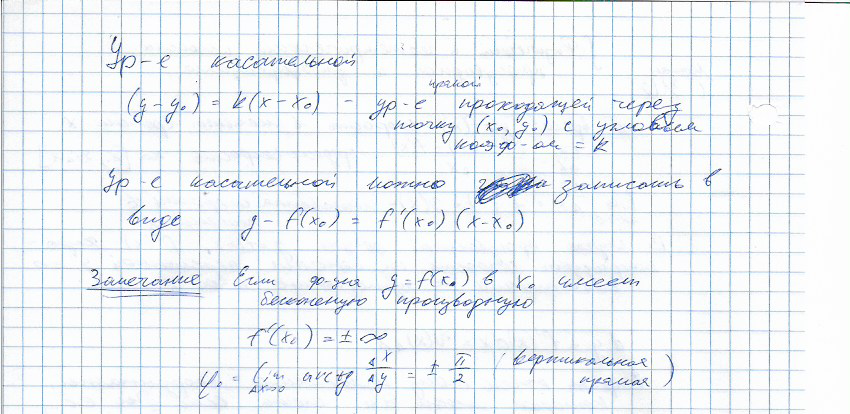 Ур-е касательной
(y-y₀) = k(x-x₀) - ур-е прямой проходящей через
точку (x₀, y₀) с угловым
коэф-ом = k
Ур-е касательной можно записать в
виде y - f(x₀) = f'(x₀) (x-x₀)
Замечание Если ф-ция y = f(x₀) в x₀ имеет
бесконечную производную
f'(x₀) = ± ∞
φ₀ = lim Δx→0 arctg Δx/Δy = ± π/2 (вертикальная
прямая)